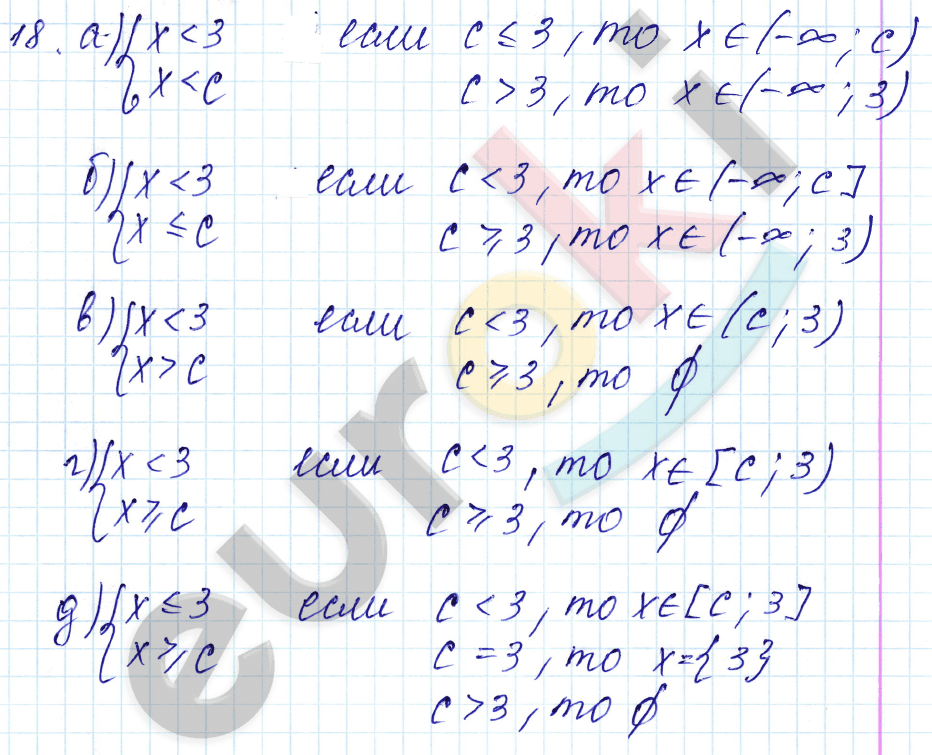 18. а) { x < 3 если c ≤ 3, то x ∈ (-∞; c)
{ x < c c > 3, то x ∈ (-∞; 3)
б) { x < 3 если c < 3, то x ∈ (-∞; c]
{ x ≤ c c ⩾ 3, то x ∈ (-∞; 3)
в) { x < 3 если c < 3, то x ∈ (c; 3)
{ x > c c ⩾ 3, то ∅
г) { x < 3 если c < 3, то x ∈ [c; 3)
{ x ⩾ c c ⩾ 3, то ∅
д) { x ≤ 3 если c < 3, то x ∈ [c; 3]
{ x ⩾ c c = 3, то x = {3}
c > 3, то ∅
euroki